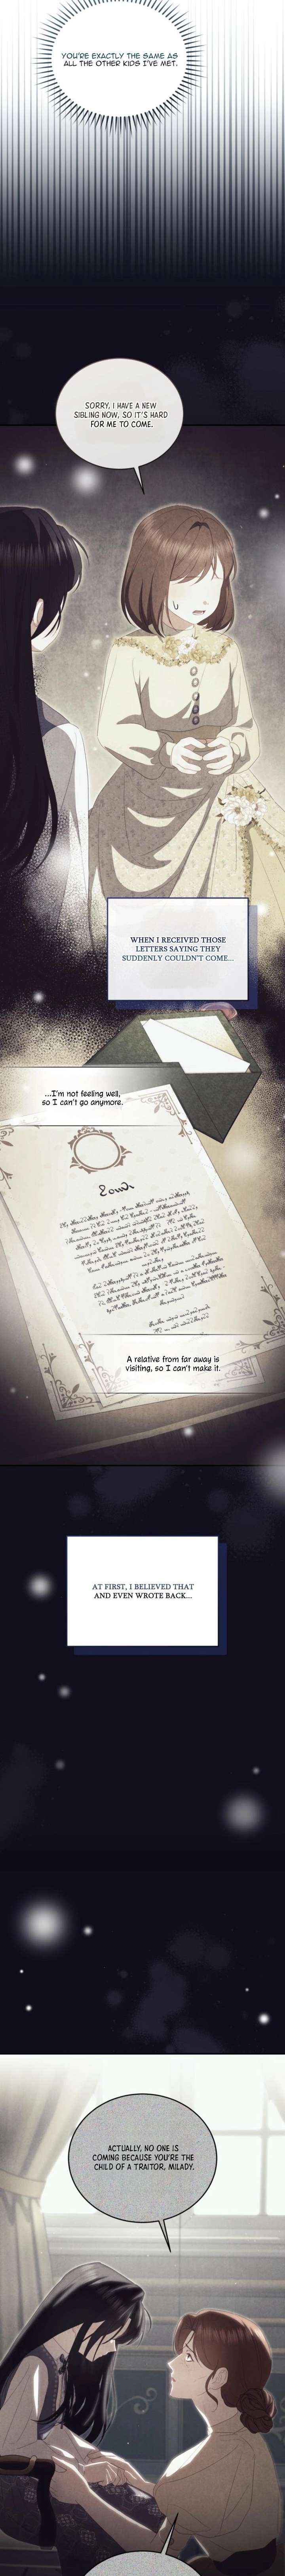 YOU'RE EXACTLY THE SAME AS
ALL THE OTHER KIDS I'VE MET.
SORRY, I HAVE A NEW
SIBLING NOW, SO IT'S HARD
FOR ME TO COME.
WHEN I RECEIVED THOSE
LETTERS SAYING THEY
SUDDENLY COULDN'T COME...
...I'm not feeling well,
so I can't go anymore.
A relative from far away is
visiting, so I can't make it.
AT FIRST, I BELIEVED THAT
AND EVEN WROTE BACK...
ACTUALLY, NO ONE IS
COMING BECAUSE YOU'RE THE
CHILD OF A TRAITOR, MILADY.